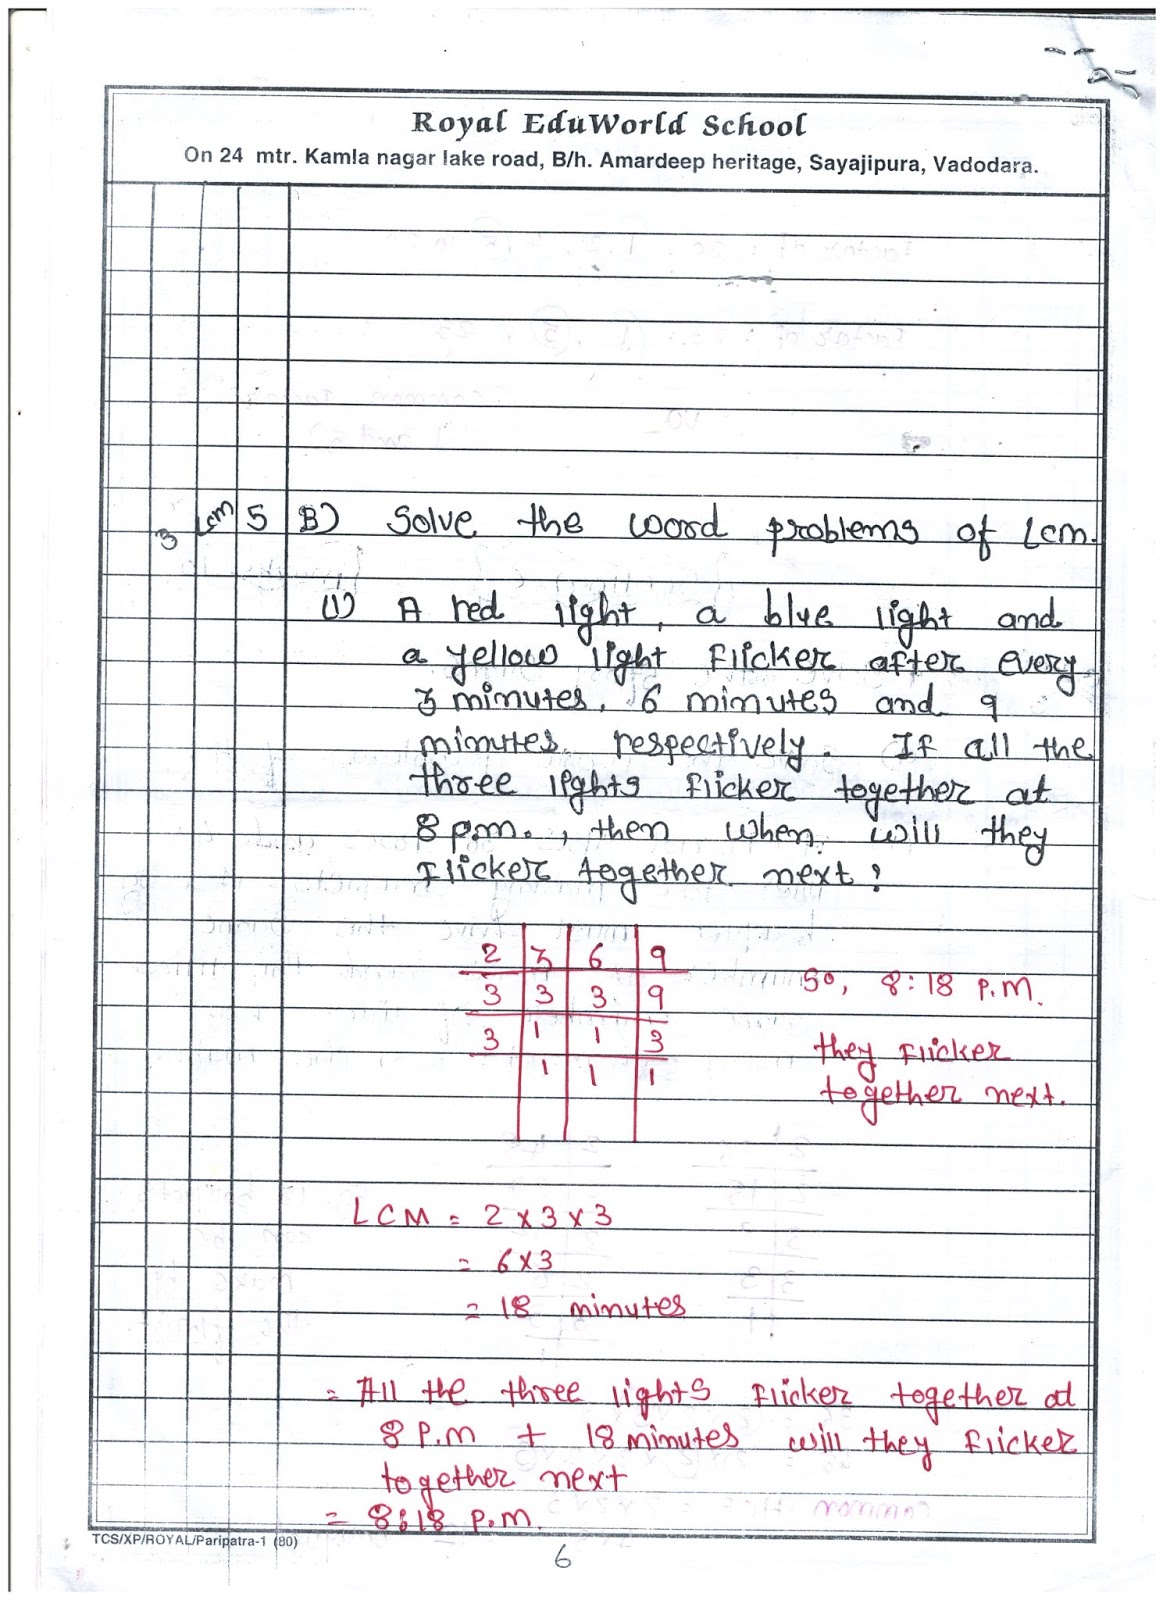 Royal EduWorld School
On 24 mtr. Kamla nagar lake road, B/h. Amardeep heritage, Sayajipura, Vadodara.
3 Lcm 5 B) Solve the word problems of Lcm.
(1) A red light, a blue light and
a yellow light flicker after every
3 minutes, 6 minutes and 9
minutes respectively. If all the
three lights flicker together at
8 p.m., then when will they
flicker together next?
2 3 6 9
3 3 3 9
3 1 1 3
1 1 1
So, 8:18 P.M.
they flicker
together next.
LCM = 2 x 3 x 3
= 6 x 3
= 18 minutes
= All the three lights flicker together at
8 P.m + 18 minutes will they flicker
together next
= 8:18 P.m.
TCS/XP/ROYAL/Paripatra-1 (80)
6